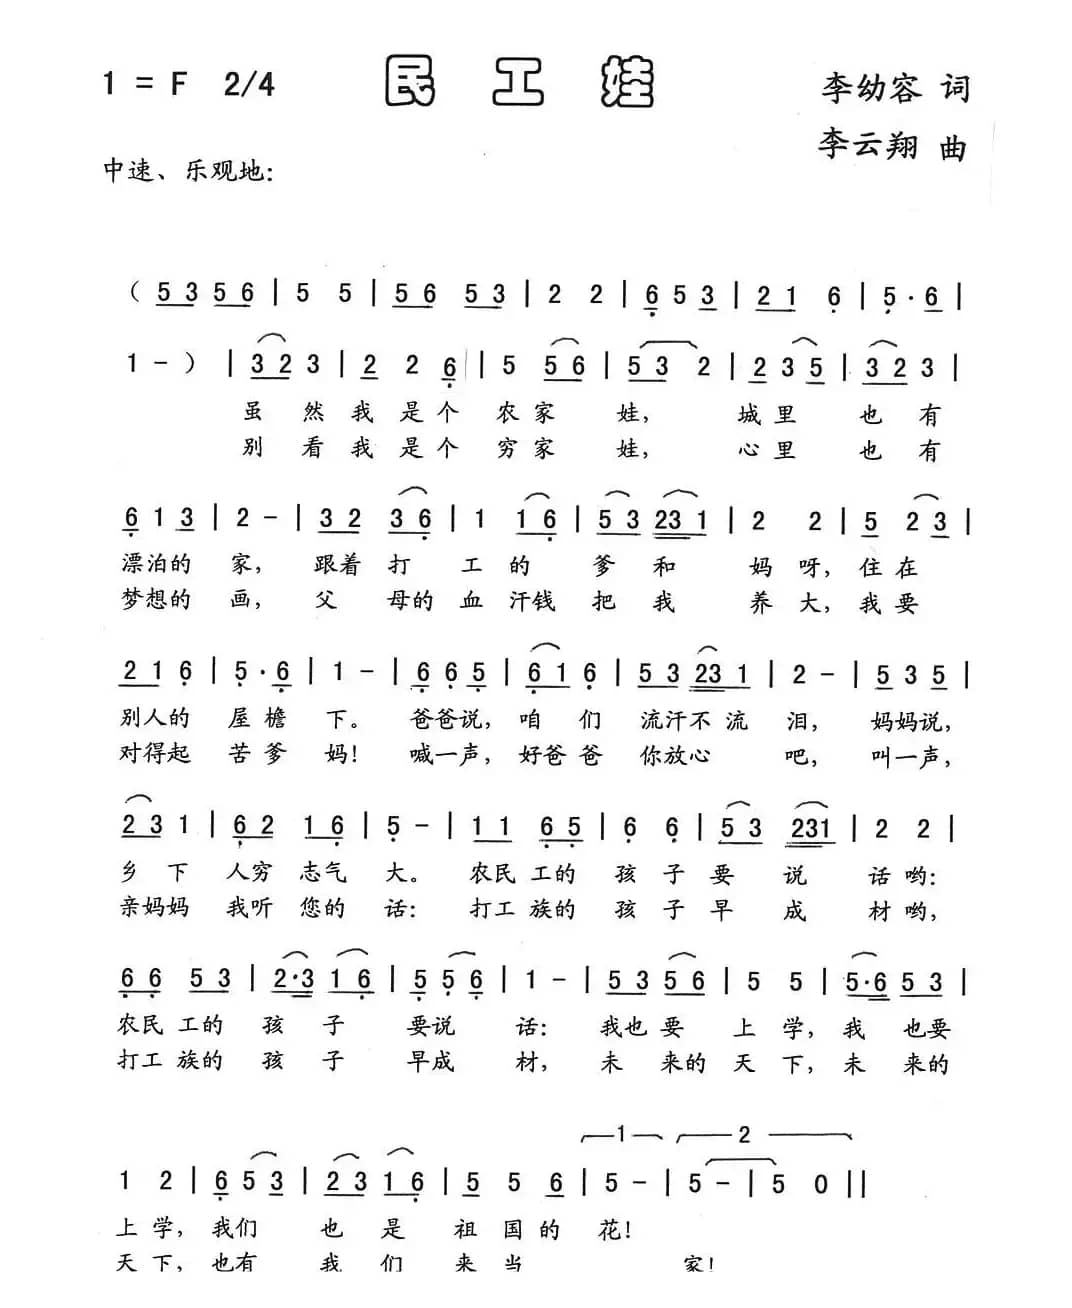 1 = F 2/4 民工娃 李幼容 词
李云翔 曲
中速、乐观地：
（ 5 3 5 6 | 5 5 | 5 6 5 3 | 2 2 | 6 5 3 | 2 1 6 | 5 · 6 |
1 - ） | 3 2 3 | 2 2 6 | 5 5 6 | 5 3 2 | 2 3 5 | 3 2 3 |
虽然我是个农家娃，城里也有
别看我是个穷家娃，心里也有
6 1 3 | 2 - | 3 2 3 6 | 1 1 6 | 5 3 23 1 | 2 2 | 5 2 3 |
漂泊的家，跟着打工的爹和妈呀，住在
梦想的画，父母的血汗钱把我养大，我要
2 1 6 | 5 · 6 | 1 - | 6 6 5 | 6 1 6 | 5 3 23 1 | 2 - | 5 3 5 |
别人的屋檐下。爸爸说，咱们流汗不流泪，妈妈说，
对得起苦爹妈！喊一声，好爸爸你放心吧，叫一声，
2 3 1 | 6 2 1 6 | 5 - | 1 1 6 5 | 6 6 | 5 3 231 | 2 2 |
乡下人穷志气大。农民工的孩子要说话哟：
亲妈妈我听您的话：打工族的孩子早成材哟，
6 6 5 3 | 2·3 1 6 | 5 5 6 | 1 - | 5 3 5 6 | 5 5 | 5·6 5 3 |
农民工的孩子要说话：我也要上学，我也要
打工族的孩子早成材，未来的天下，未来的
1 2
1 2 | 6 5 3 | 2 3 1 6 | 5 5 6 | 5 - | 5 - | 5 0 ||
上学，我们也是祖国的花！
天下，也有我们来当家！